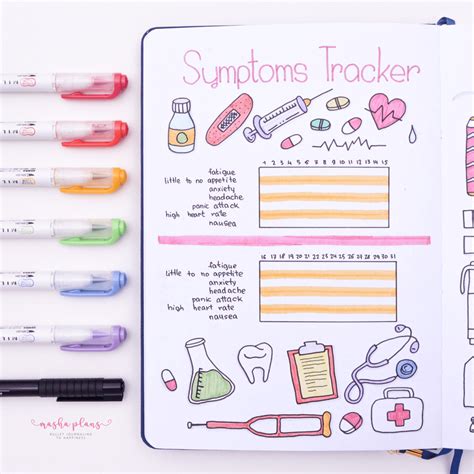 Symptoms Tracker
1 2 3 4 5 6 7 8 9 10 11 12 13 14 15
fatigue
little to no appetite
anxiety
headache
panic attack
high heart rate
nausea
16 17 18 19 20 21 22 23 24 25 26 27 28 29 30 31
fatigue
little to no appetite
anxiety
headache
panic attack
high heart rate
nausea
masha plans
BULLET JOURNALING
TO HAPPINESS